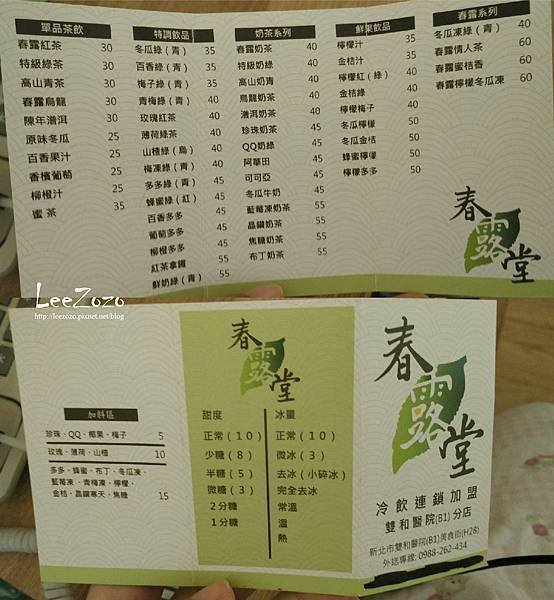 單品茶飲
春露紅茶 30
特級綠茶 30
高山青茶 30
春露烏龍 30
陳年潽洱 30
原味冬瓜 25
百香果汁 25
香檳葡萄 25
柳橙汁 25
蜜茶 35
特調飲品
冬瓜綠(青) 35
百香綠(青) 35
梅子綠(青) 35
青梅綠(青) 40
玫瑰紅茶 40
薄荷綠茶 40
山楂綠(烏) 40
梅凍綠(青) 45
多多綠(青) 45
蜂蜜綠(紅) 45
百香多多 45
葡萄多多 45
柳橙多多 45
紅茶拿鐵 55
鮮奶綠(青) 55
奶茶系列
春露奶茶 40
特級奶綠 40
高山奶青 40
烏龍奶茶 40
潽洱奶茶 40
珍珠奶茶 45
QQ奶綠 45
阿華田 45
可可亞 45
冬瓜牛奶 45
藍莓凍奶茶 55
晶鑽奶茶 55
焦糖奶茶 55
布丁奶茶 55
鮮果飲品
檸檬汁 35
金桔汁 35
檸檬紅(綠) 40
金桔綠 40
檸檬梅子 40
冬瓜檸檬 50
冬瓜金桔 50
蜂蜜檸檬 50
檸檬多多 50
春露系列
冬瓜凍綠(青) 40
春露情人茶 60
春露蜜桔香 60
春露檸檬冬瓜凍 60
春露堂
LeeZozo
http://leezozo.pixnet.net/blog
加料區
珍珠、QQ、椰果、梅子 5
玫瑰、薄荷、山楂 10
多多、蜂蜜、布丁、冬瓜凍、
藍莓凍、青梅凍、檸檬、
金桔、晶鑽寒天、焦糖 15
春露堂
甜度
正常(10)
少糖(8)
半糖(5)
微糖(3)
2分糖
1分糖
冰量
正常(10)
微冰(3)
去冰(小碎冰)
完全去冰
常溫
溫
熱
春露堂
冷飲連鎖加盟
雙和醫院(B1)分店
新北市雙和醫院(B1)美食街(H28)
外送專線: 0988-262-434